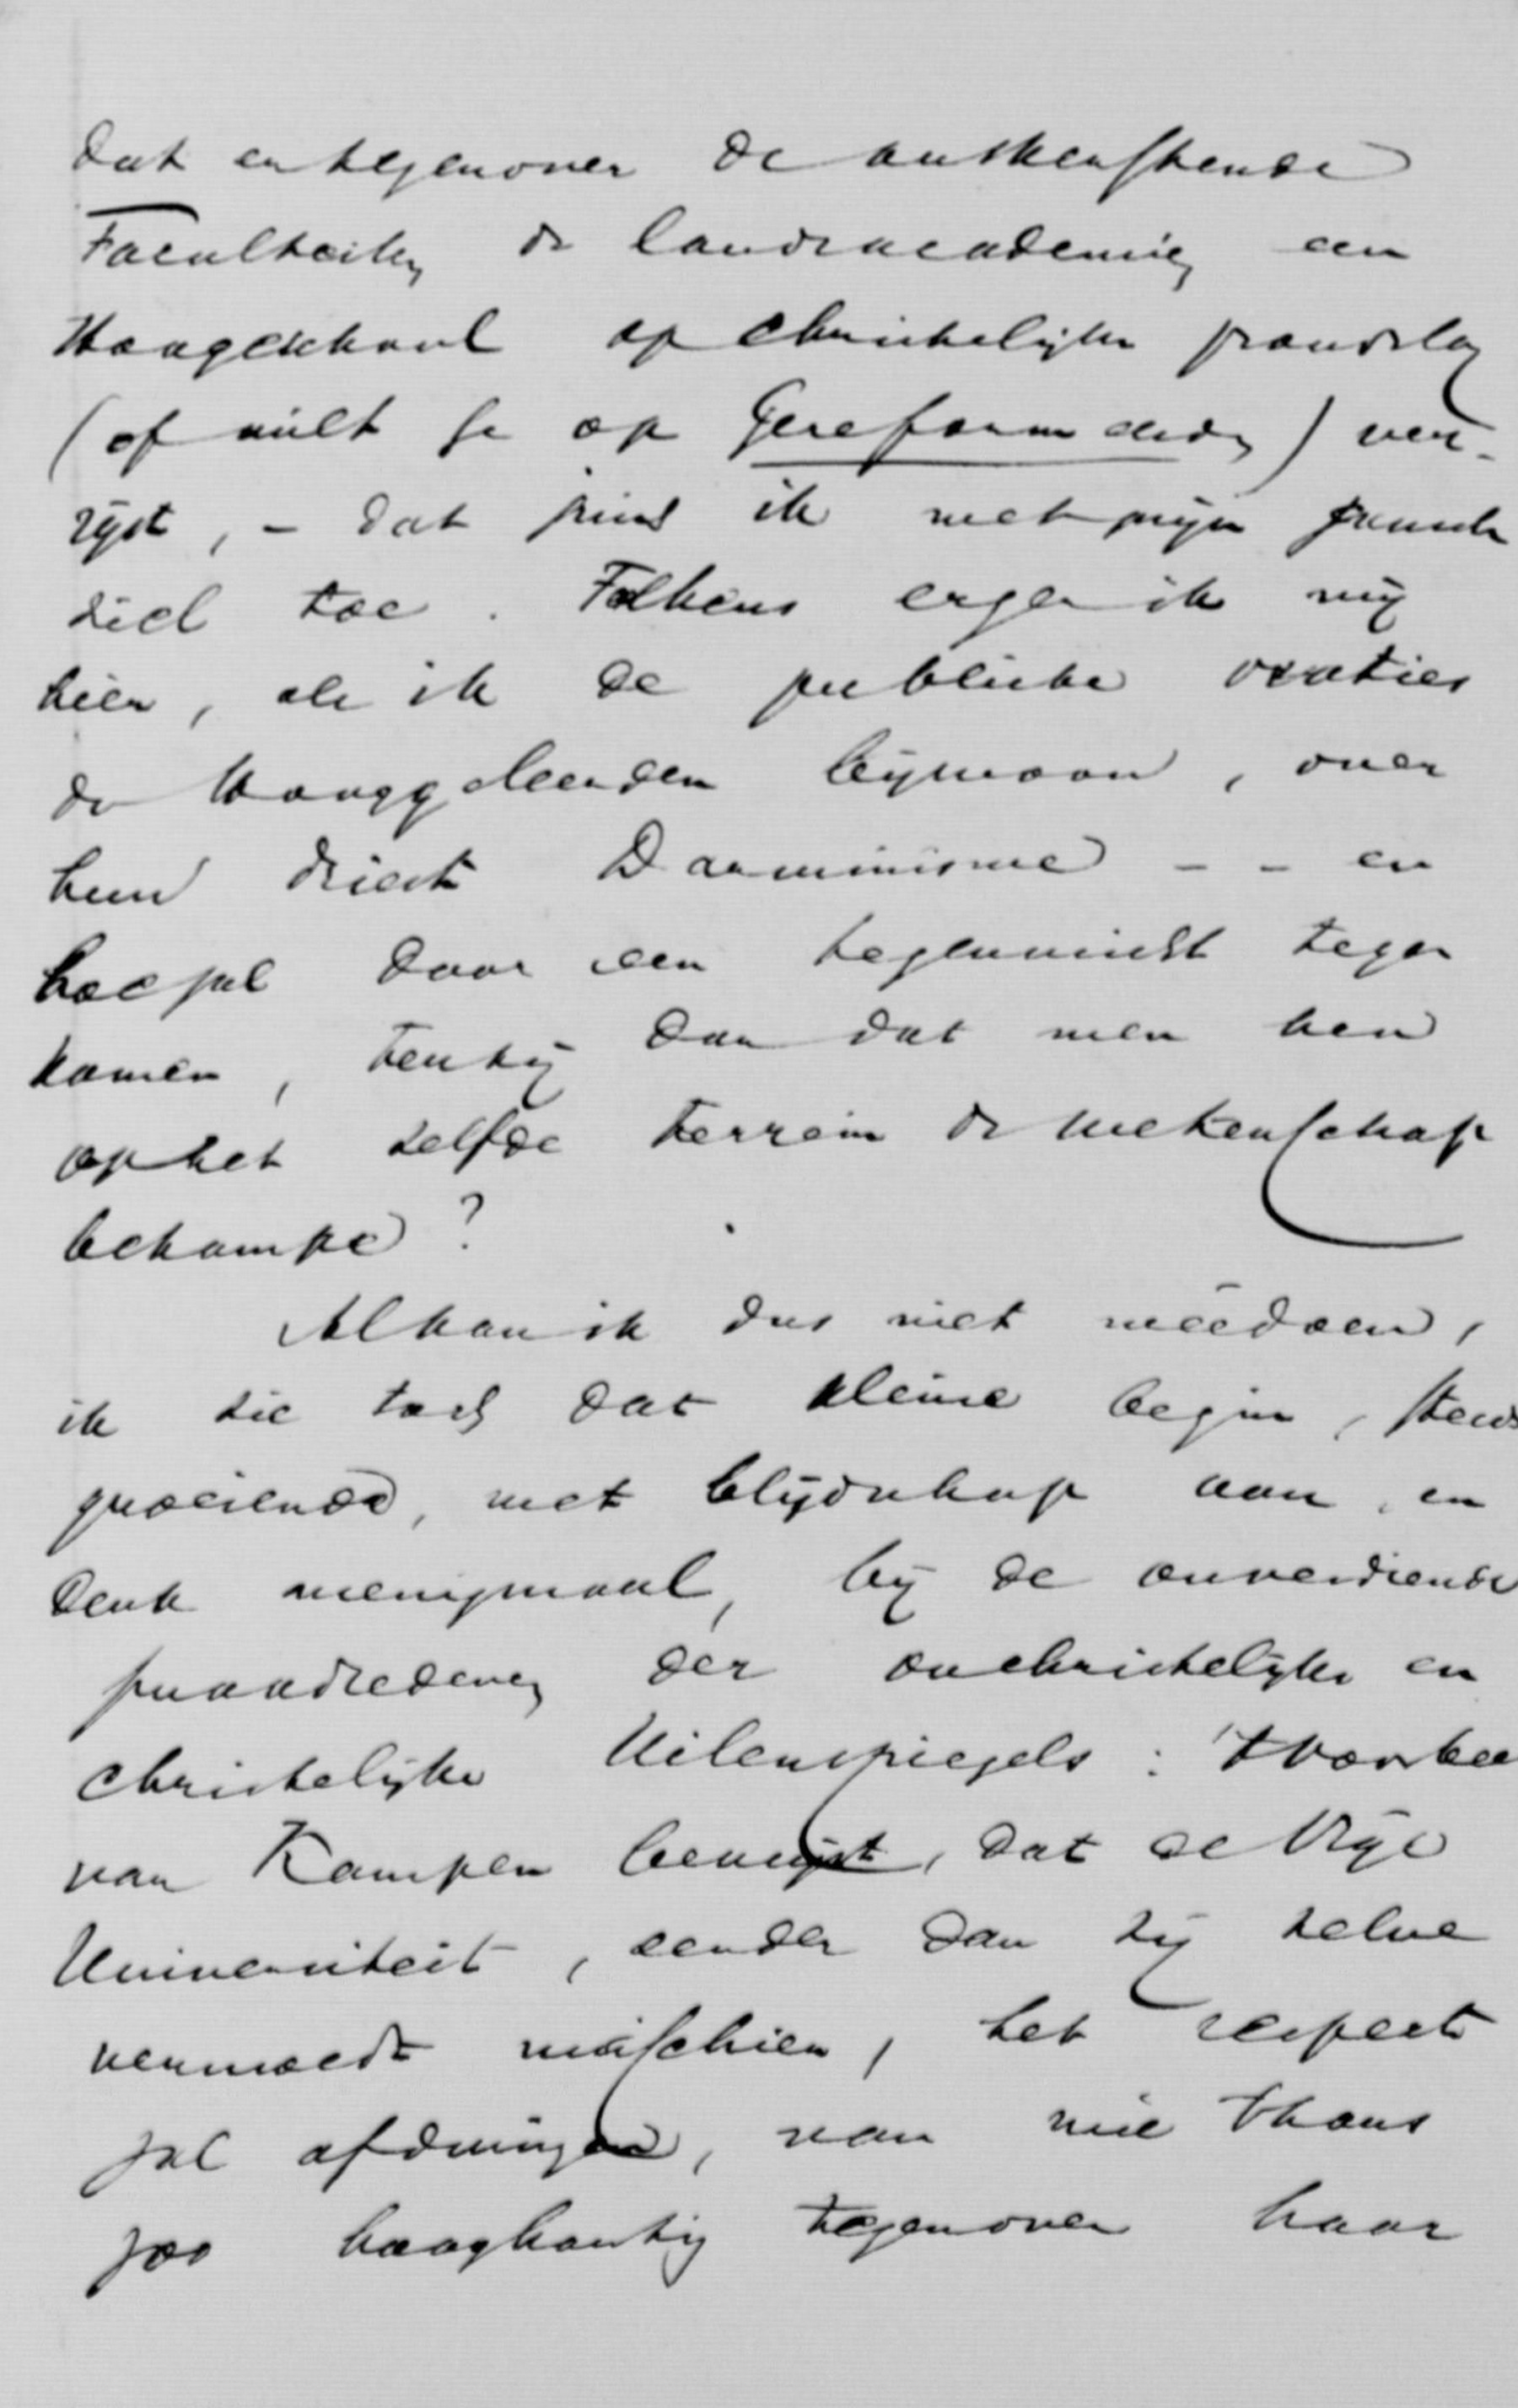 dat er tegenover de ontkerstende
Faculteiten dr landsacademiën een
Hoogeschool op Christelijken grondslag
(of wilt ge op Gereformeerden) ver-
rijst, – dat juich ik met mijn gansche
ziel toe. Telkens erger ik mij
hier, als ik de publieke oraties
dr Hooggeleerden bijwoon, over
hun driest Darwinisme – – en
hoe zal daar een tegenwicht tegen
komen, tenzij dan dat men hen
op het zelfde terrein dr wetenschap
bekampe?
Al kan ik dus niet meêdoen,
ik zie toch dat kleine begin, steeds
groeiende, met blijdschap aan, en
denk menigmaal, bij de onverdiende
smaadredenen der onchristelijke en
christelijke Uilenspiegels: 't voorbeeld
van Kampen bewijst, dat de Vrije
Universiteit, eender dan zij zelve
vermoedt misschien, het respect
zal afdwingen, van wie thans
zoo hooghartig tegenover haar